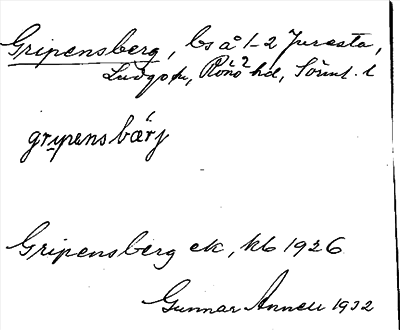 Gripensberg, bs å 1-2 Juresta,
Ludgo sn, Rönö hd, Söml. l
gripensbärj
Gripensberg ek, kb 1926
Gunnar Annell 1932